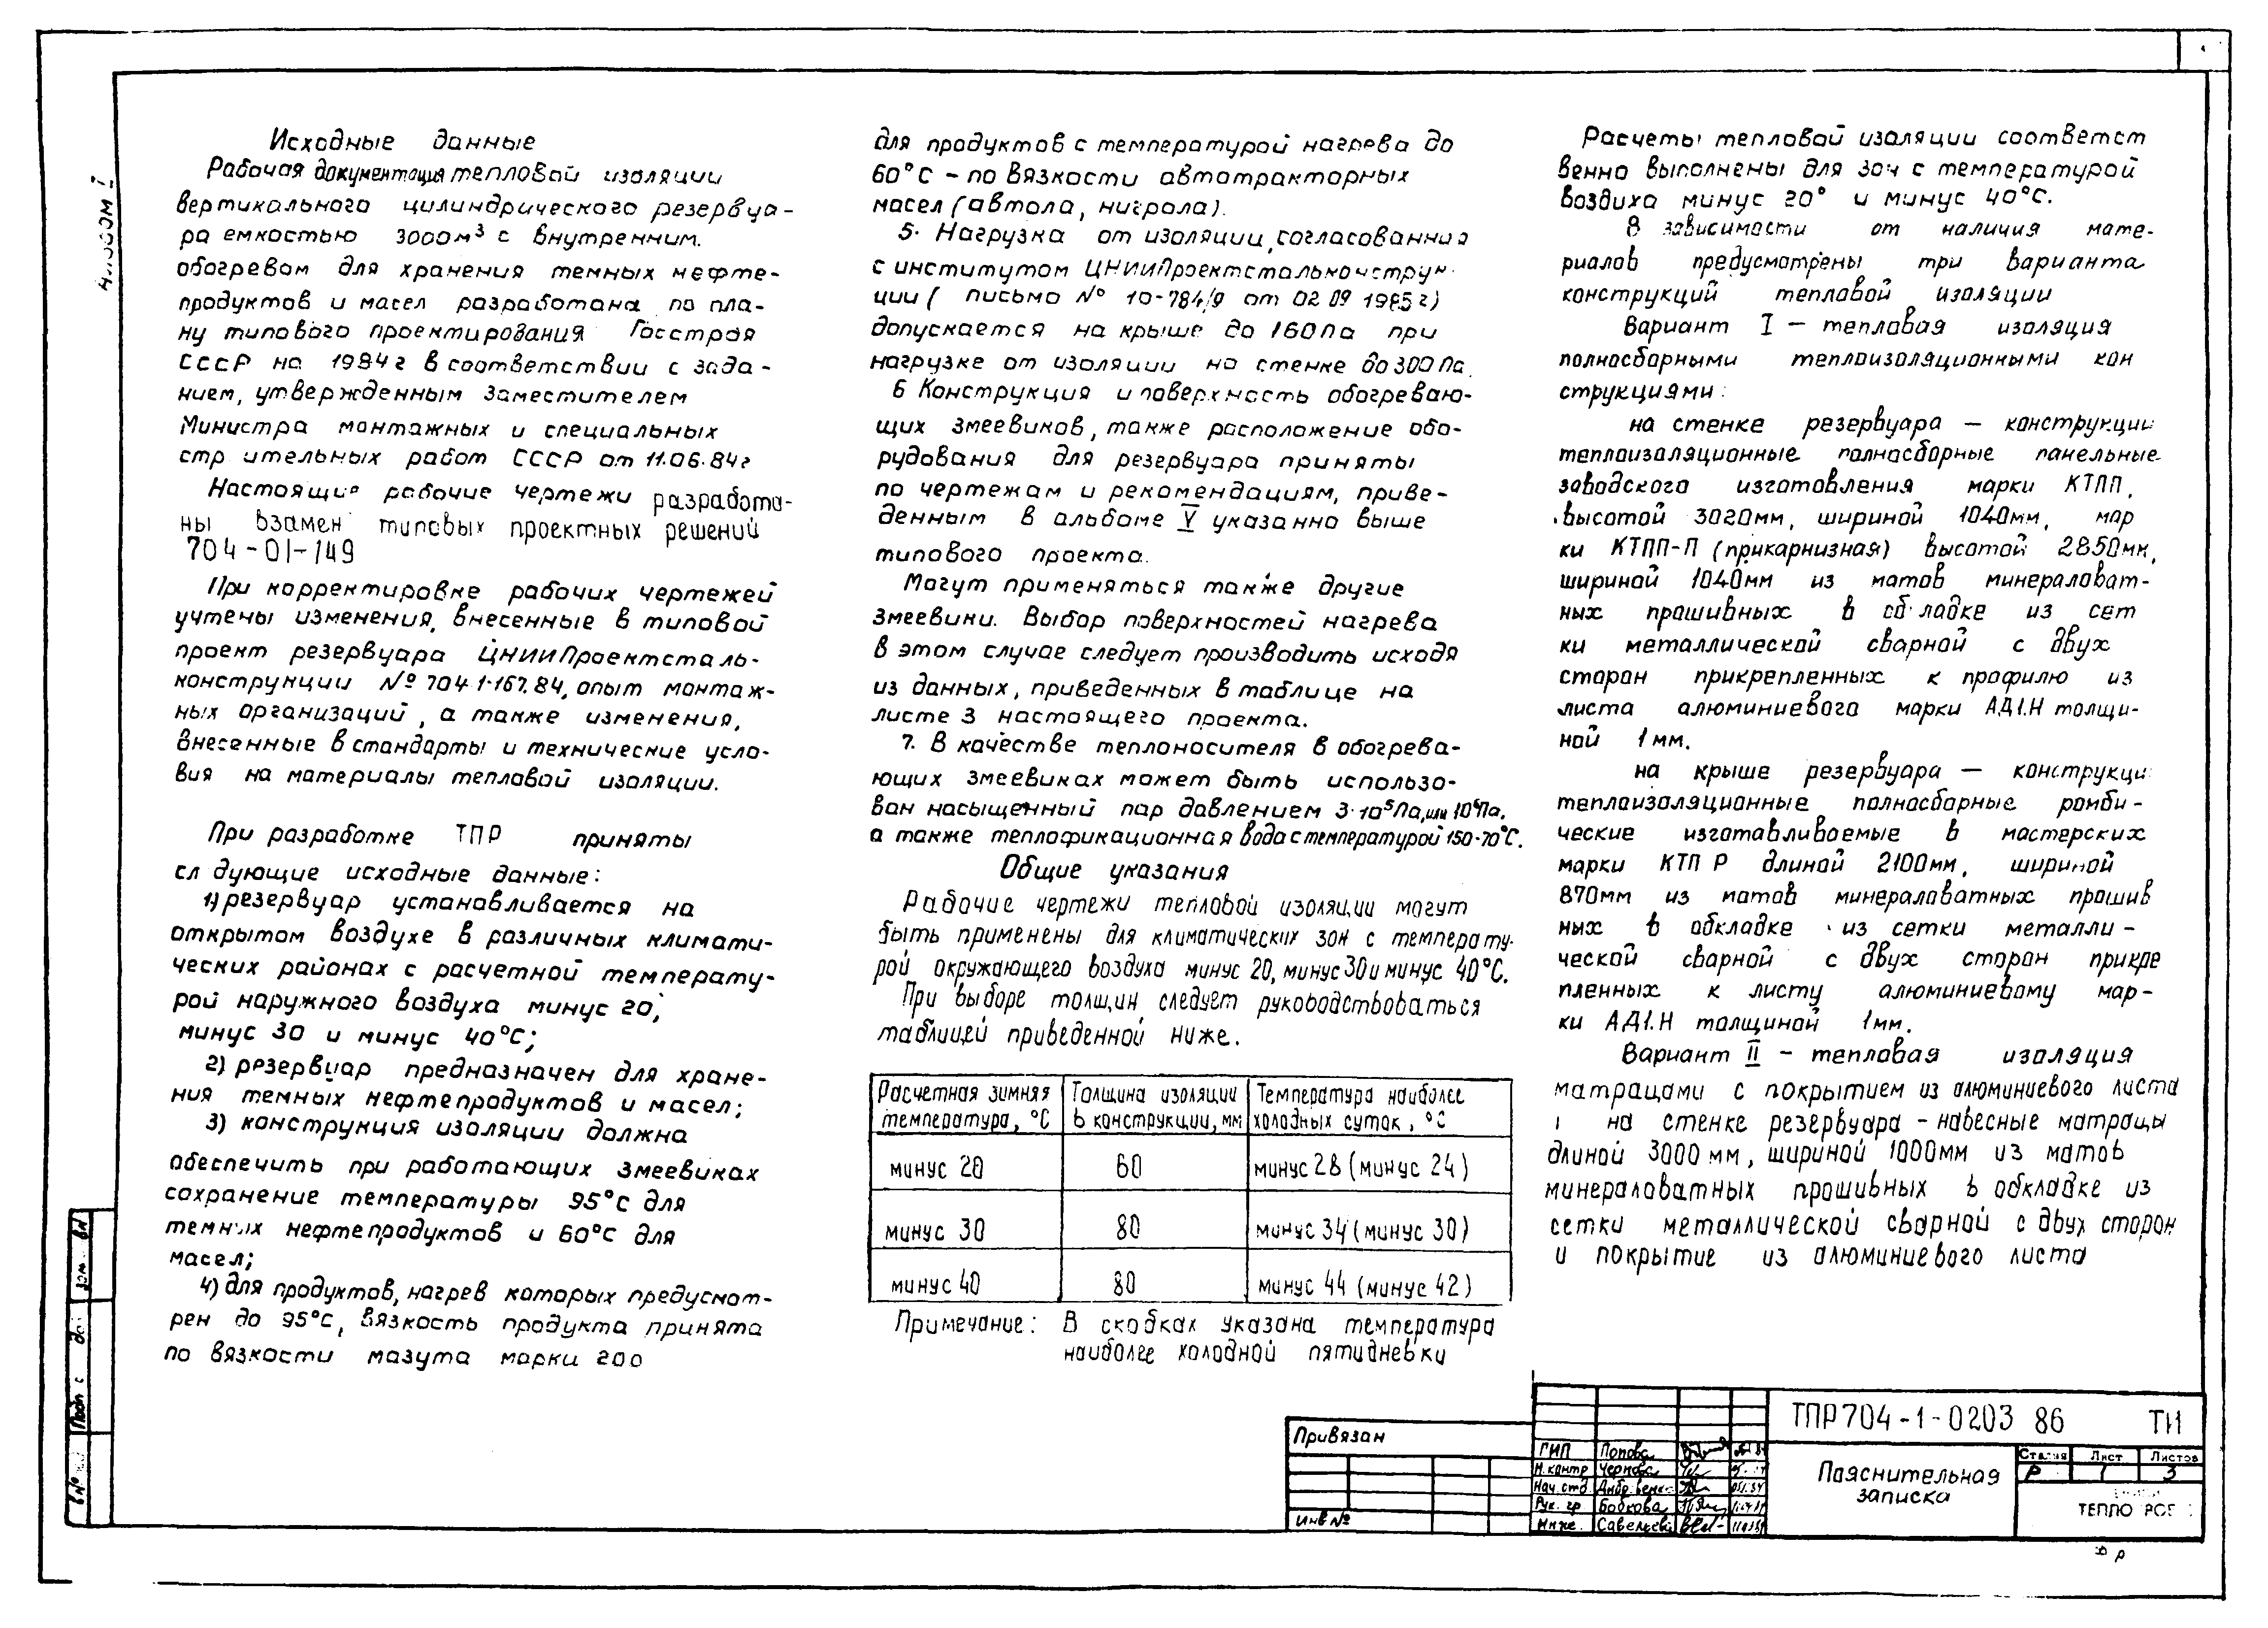 Альбом I
Исходные данные
Рабочая документация тепловой изоляции
вертикального цилиндрического резервуа-
ра емкостью 3000м³ с внутренним.
обогревом для хранения темных нефте-
продуктов и масел разработана по пла-
ну типового проектирования Госстроя
СССР на 1984г в соответствии с зада-
нием, утвержденным Заместителем
Министра монтажных и специальных
стр ительных работ СССР от 11.06.84г
Настоящие рабочие чертежи разработа-
ны взамен типовых проектных решений
704-01-149
При корректировке рабочих чертежей
учтены изменения, внесенные в типовой
проект резервуара ЦНИИПроектсталь-
конструкции № 704 1-167.84, опыт монтаж-
ных организаций, а также изменения,
внесенные в стандарты и технические усло-
вия на материалы тепловой изоляции.
При разработке ТПР приняты
сл дующие исходные данные:
1) резервуар устанавливается на
открытом воздухе в различных климати-
ческих районах с расчетной температу-
рой наружного воздуха минус 20,
минус 30 и минус 40°С;
2) резервуар предназначен для хране-
ния темных нефтепродуктов и масел;
3) конструкция изоляции должна
обеспечить при работающих змеевиках
сохранение температуры 95°С для
темных нефтепродуктов и 60°С для
масел;
4) для продуктов, нагрев которых предусмот-
рен до 95°С, вязкость продукта принята
по вязкости мазута марки 200
для продуктов с температурой нагрева до
60°С – по вязкости автотракторных
масел (автола, нигрола).
5. Нагрузка от изоляции, согласованная
с институтом ЦНИИПроектстальконструк
ции ( письмо № 10-784/9 от 02 09 1985г)
допускается на крыше до 160Па при
нагрузке от изоляции на стенке до 300 Па.
6 Конструкция и поверхность обогреваю-
щих змеевиков, также расположение обо-
рудования для резервуара приняты
по чертежам и рекомендациям, приве-
денным в альбоме V указанно выше
типового проекта.
Могут применяться также другие
змеевики. Выбор поверхностей нагрева
в этом случае следует производить исходя
из данных, приведенных в таблице на
листе 3 настоящего проекта.
7. В качестве теплоносителя в обогрева-
ющих змеевиках может быть использо-
ван насыщенный пар давлением 3·10⁵Па, или 10⁶Па.
а также теплофикационная вода с температурой 150-70°С.
Общие указания
Рабочие чертежи тепловой изоляции могут
быть применены для климатических зон с температу-
рой окружающего воздуха минус 20, минус 30 и минус 40°С.
При выборе толщин следует руководствоваться
таблицей приведенной ниже.
Расчетная зимняя температура, °С | Толщина изоляции в конструкции, мм | Температура наиболее холодных суток, °С
минус 20 | 60 | минус 28 (минус 24)
минус 30 | 80 | минус 34 (минус 30)
минус 40 | 80 | минус 44 (минус 42)
Примечание: В скобках указана температура
наиболее холодной пятидневки
Расчеты тепловой изоляции соответст
венно выполнены для зон с температурой
воздуха минус 20° и минус 40°С.
В зависимости от наличия мате-
риалов предусмотрены три варианта
конструкций тепловой изоляции
Вариант I – тепловая изоляция
полносборными теплоизоляционными кон
струкциями:
на стенке резервуара – конструкции
теплоизоляционные полносборные панельные
заводского изготовления марки КТПП,
высотой 3020мм, шириной 1040мм, мар
ки КТПП-П (прикарнизная) высотой 2850мм,
шириной 1040мм из матов минераловат-
ных прошивных в об ладке из сет
ки металлической сварной с двух
сторон прикрепленных к профилю из
листа алюминиевого марки АД1.Н толщи-
ной 1мм.
на крыше резервуара – конструкци
теплоизоляционные полносборные ромби-
ческие изготавливаемые в мастерских
марки КТП Р длиной 2100мм, шириной
870мм из матов минераловатных прошив
ных в обкладке из сетки металли-
ческой сварной с двух сторон прикре
пленных к листу алюминиевому мар-
ки АД1.Н толщиной 1мм.
Вариант II – тепловая изоляция
матрацами с покрытием из алюминиевого листа
на стенке резервуара - навесные матрацы
длиной 3000 мм, шириной 1000мм из матов
минераловатных прошивных в обкладке из
сетки металлической сварной с двух сторон
и покрытие из алюминиевого листа
Привязан
Инв №
ГИП Попова
Н.контр Чернова
Нач. отд
Рук. гр Бобкова
Инже. Савельева
ТПР 704-1-0203 86 ТИ
Пояснительная
записка
Стадия Лист Листов
Р 1 3
ТЕПЛО РОЕ
Подп с